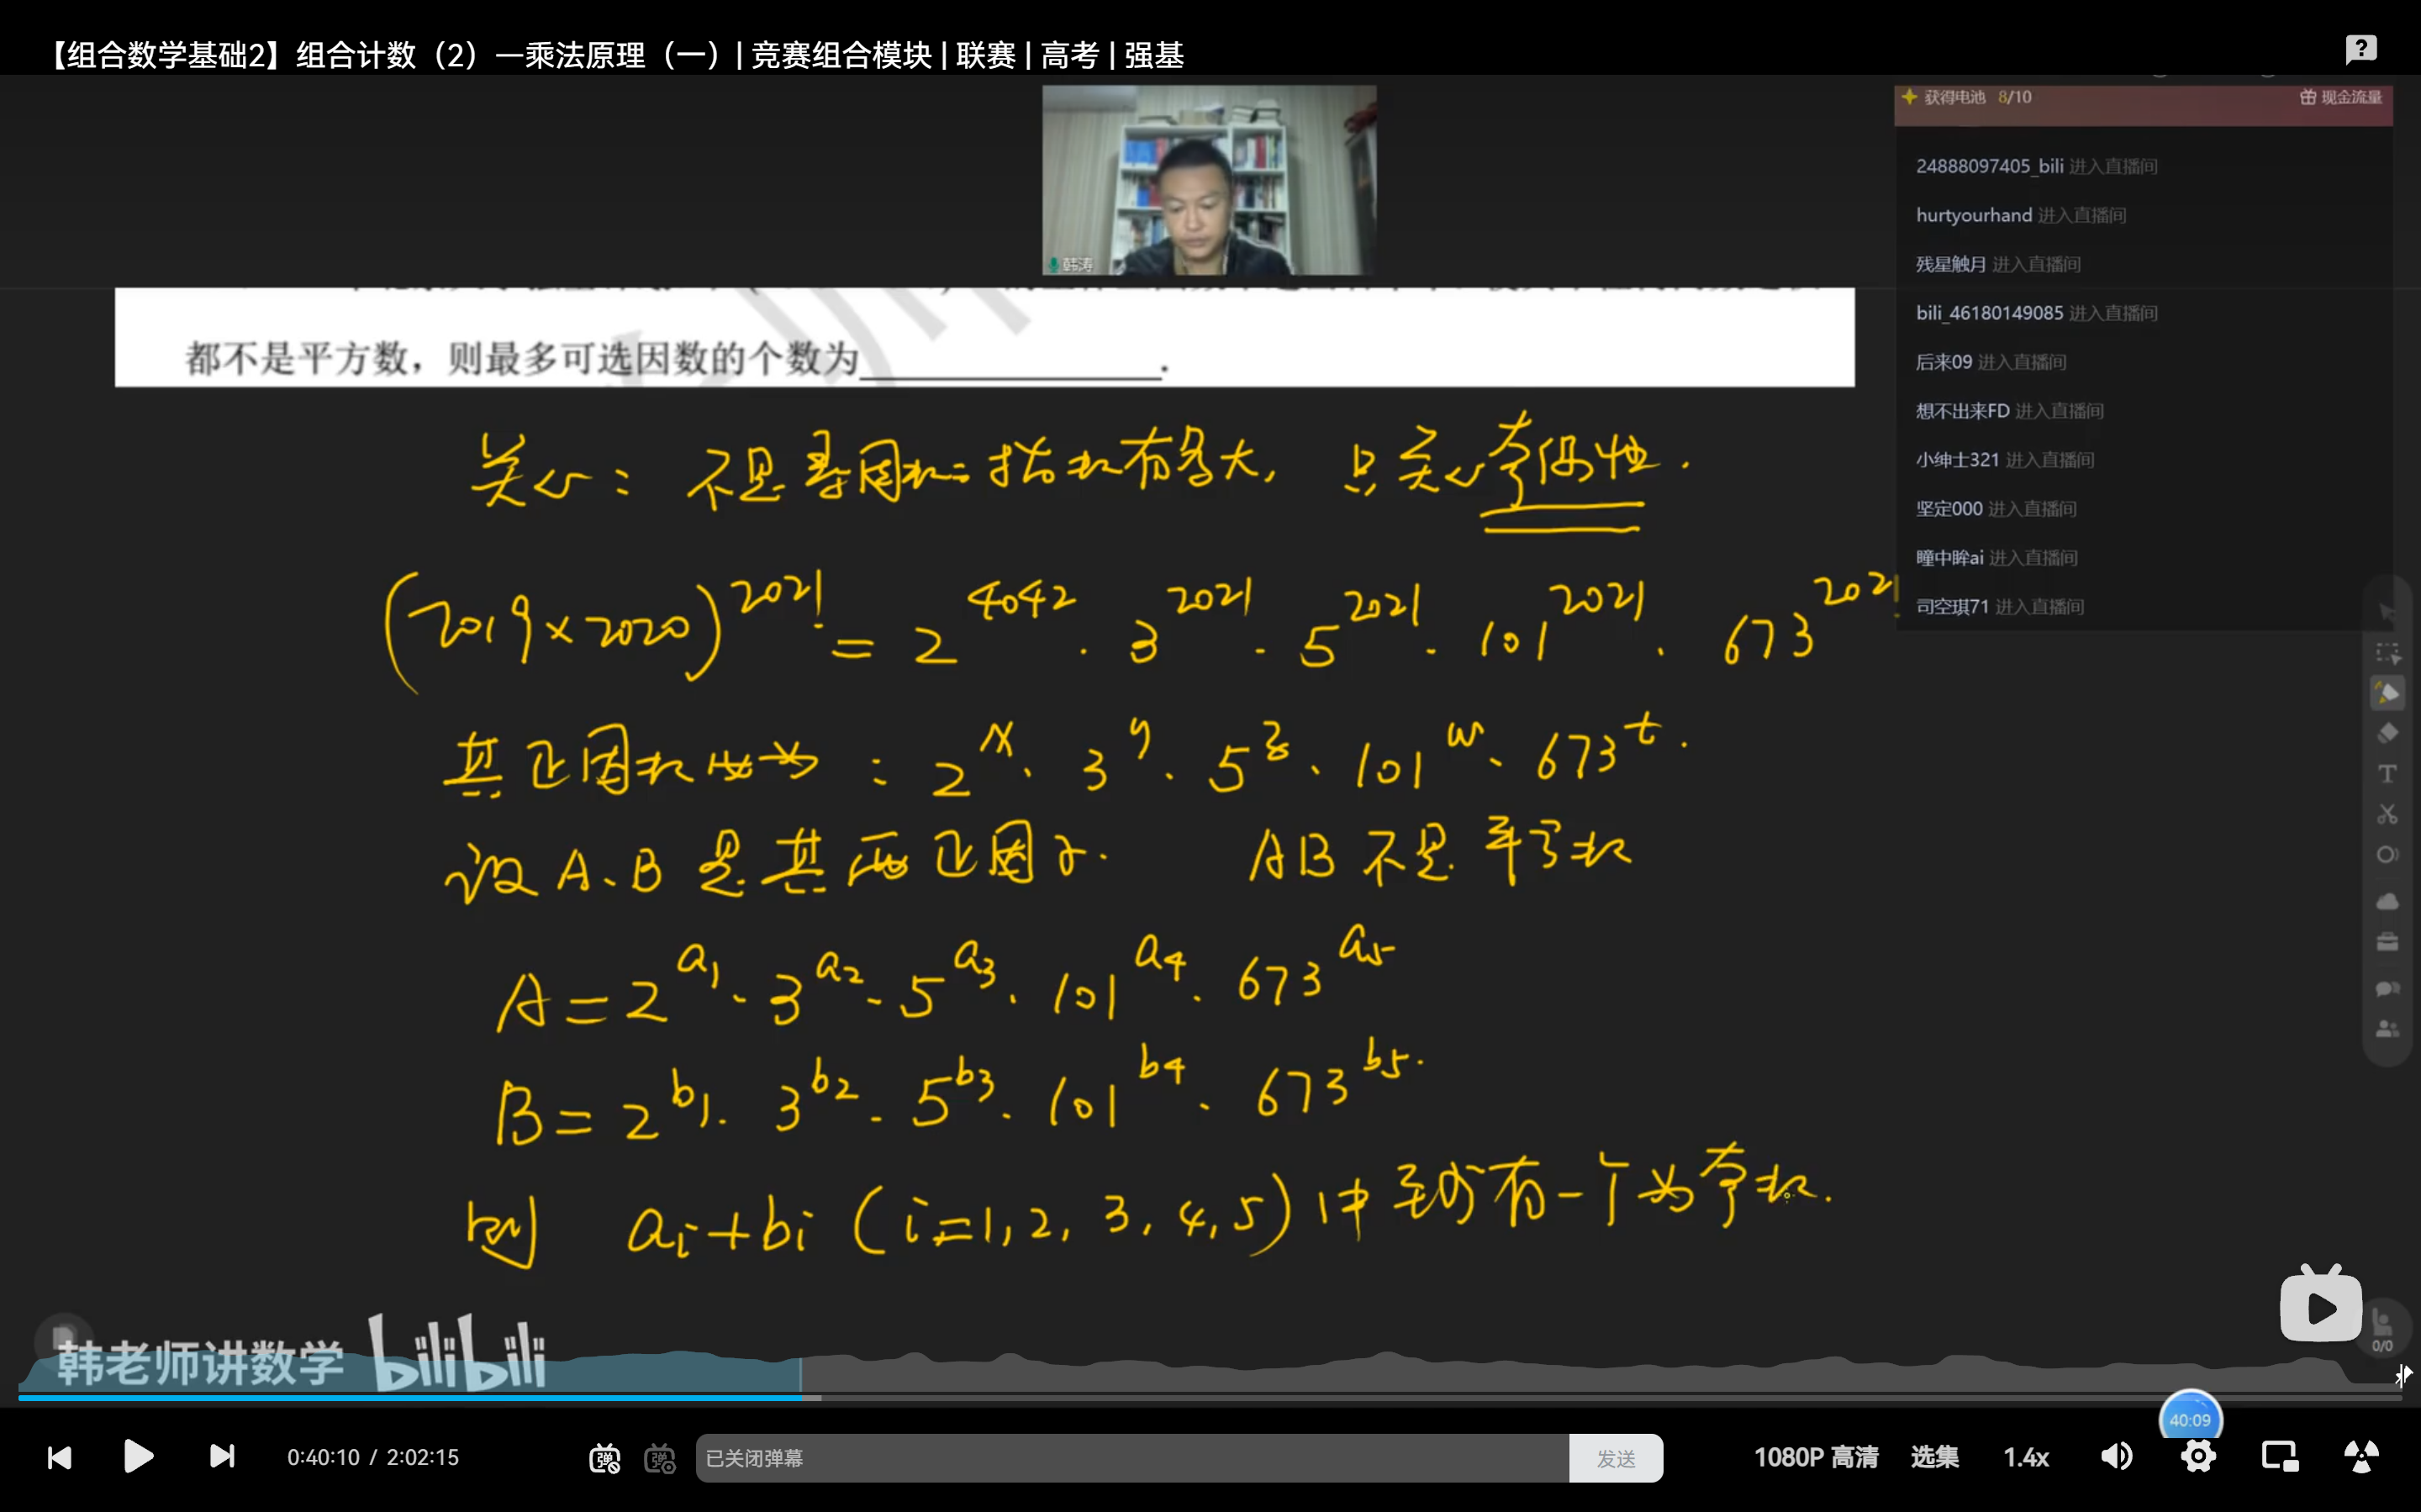 【组合数学基础2】组合计数（2）—乘法原理（一）| 竞赛组合模块 | 联赛 | 高考 | 强基
获得电池 8/10 现金流量
24888097405_bili 进入直播间
hurtyourhand 进入直播间
残星触月 进入直播间
bili_46180149085 进入直播间
后来09 进入直播间
想不出来FD 进入直播间
小绅士321 进入直播间
坚定000 进入直播间
瞳中眸ai 进入直播间
司空琪71 进入直播间
韩涛
都不是平方数，则最多可选因数的个数为 .
关心：不是每因数指数有多大，只关心奇偶性.
(2019×2020)^2021 = 2^4042 · 3^2021 · 5^2021 · 101^2021 · 673^2021
其正因数必为：2^x · 3^y · 5^z · 101^w · 673^t.
设 A、B 是其两正因子. AB 不是平方数
A = 2^a1 · 3^a2 · 5^a3 · 101^a4 · 673^a5
B = 2^b1 · 3^b2 · 5^b3 · 101^b4 · 673^b5.
则 ai+bi (i=1, 2, 3, 4, 5) 中至少有一个为奇数.
韩老师讲数学 bilibili
0/0
40:09
0:40:10 / 2:02:15 弹 弹 已关闭弹幕 发送 1080P 高清 选集 1.4x